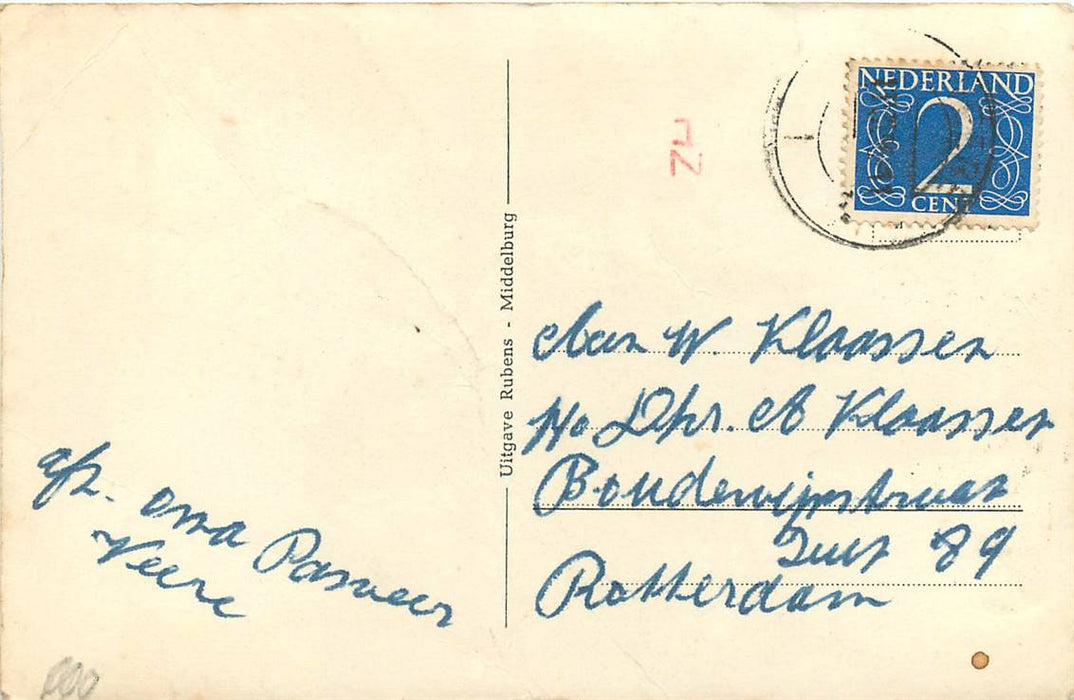 NEDERLAND
2
CENT
ZL
Uitgave Rubens - Middelburg
Aan W. Klaassen
p/o Dhr. A Klaassen
Boudewijnstraat
Zuit 89
Rotterdam
afz. oma Pasveer
Veere